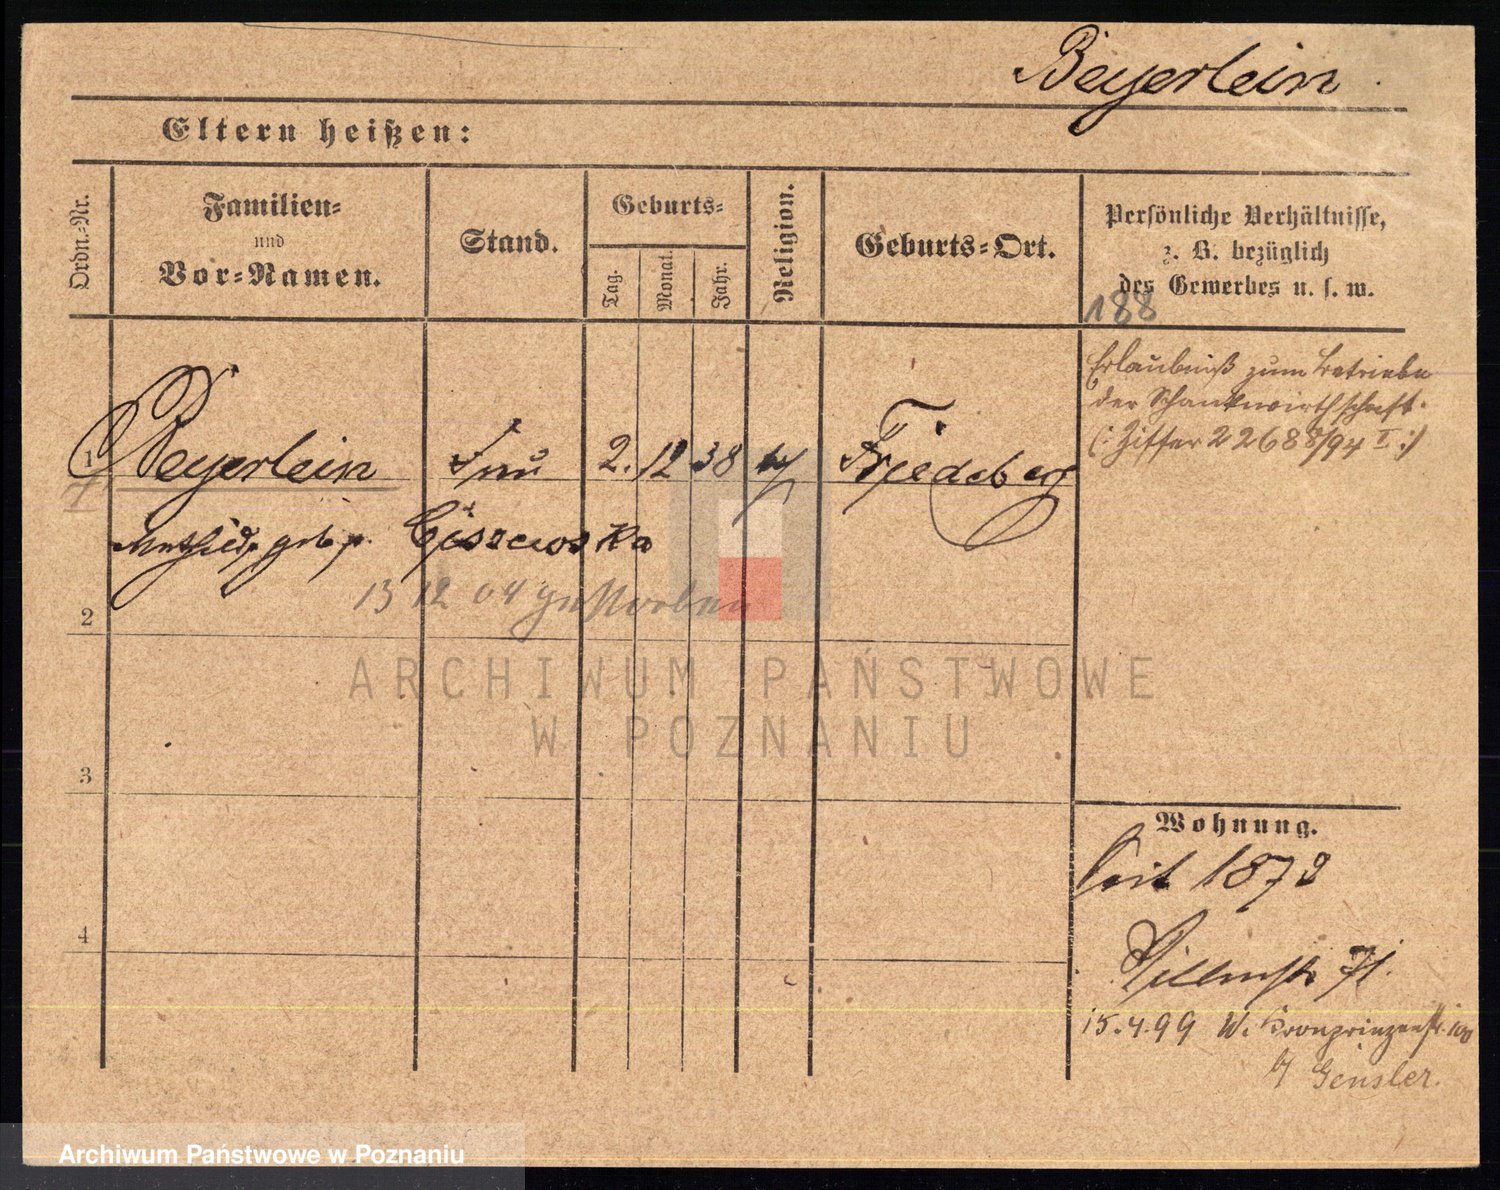 Beyerlein
Eltern heißen:
Ordn.-Nr.
Familien-
und
Vor-Namen.
Stand.
Geburts-
Tag.
Monat.
Jahr.
Religion.
Geburts-Ort.
Persönliche Verhältnisse,
z. B. bezüglich
des Gewerbes u. s. w.
188
1
Beyerlein
2. 12 38
Friedeberg
geb. Ciszewska
13 12 04 gestorben
Erlaubniß zum Betriebe
der Schankwirthschaft.
(: Ziffer 22688/94 I :)
2
3
4
Wohnung.
Seit 1872
71.
15.4.99 W. Kronprinzenstr. 100
b/ Gensler.
ARCHIWUM PAŃSTWOWE
W POZNANIU
Archiwum Państwowe w Poznaniu